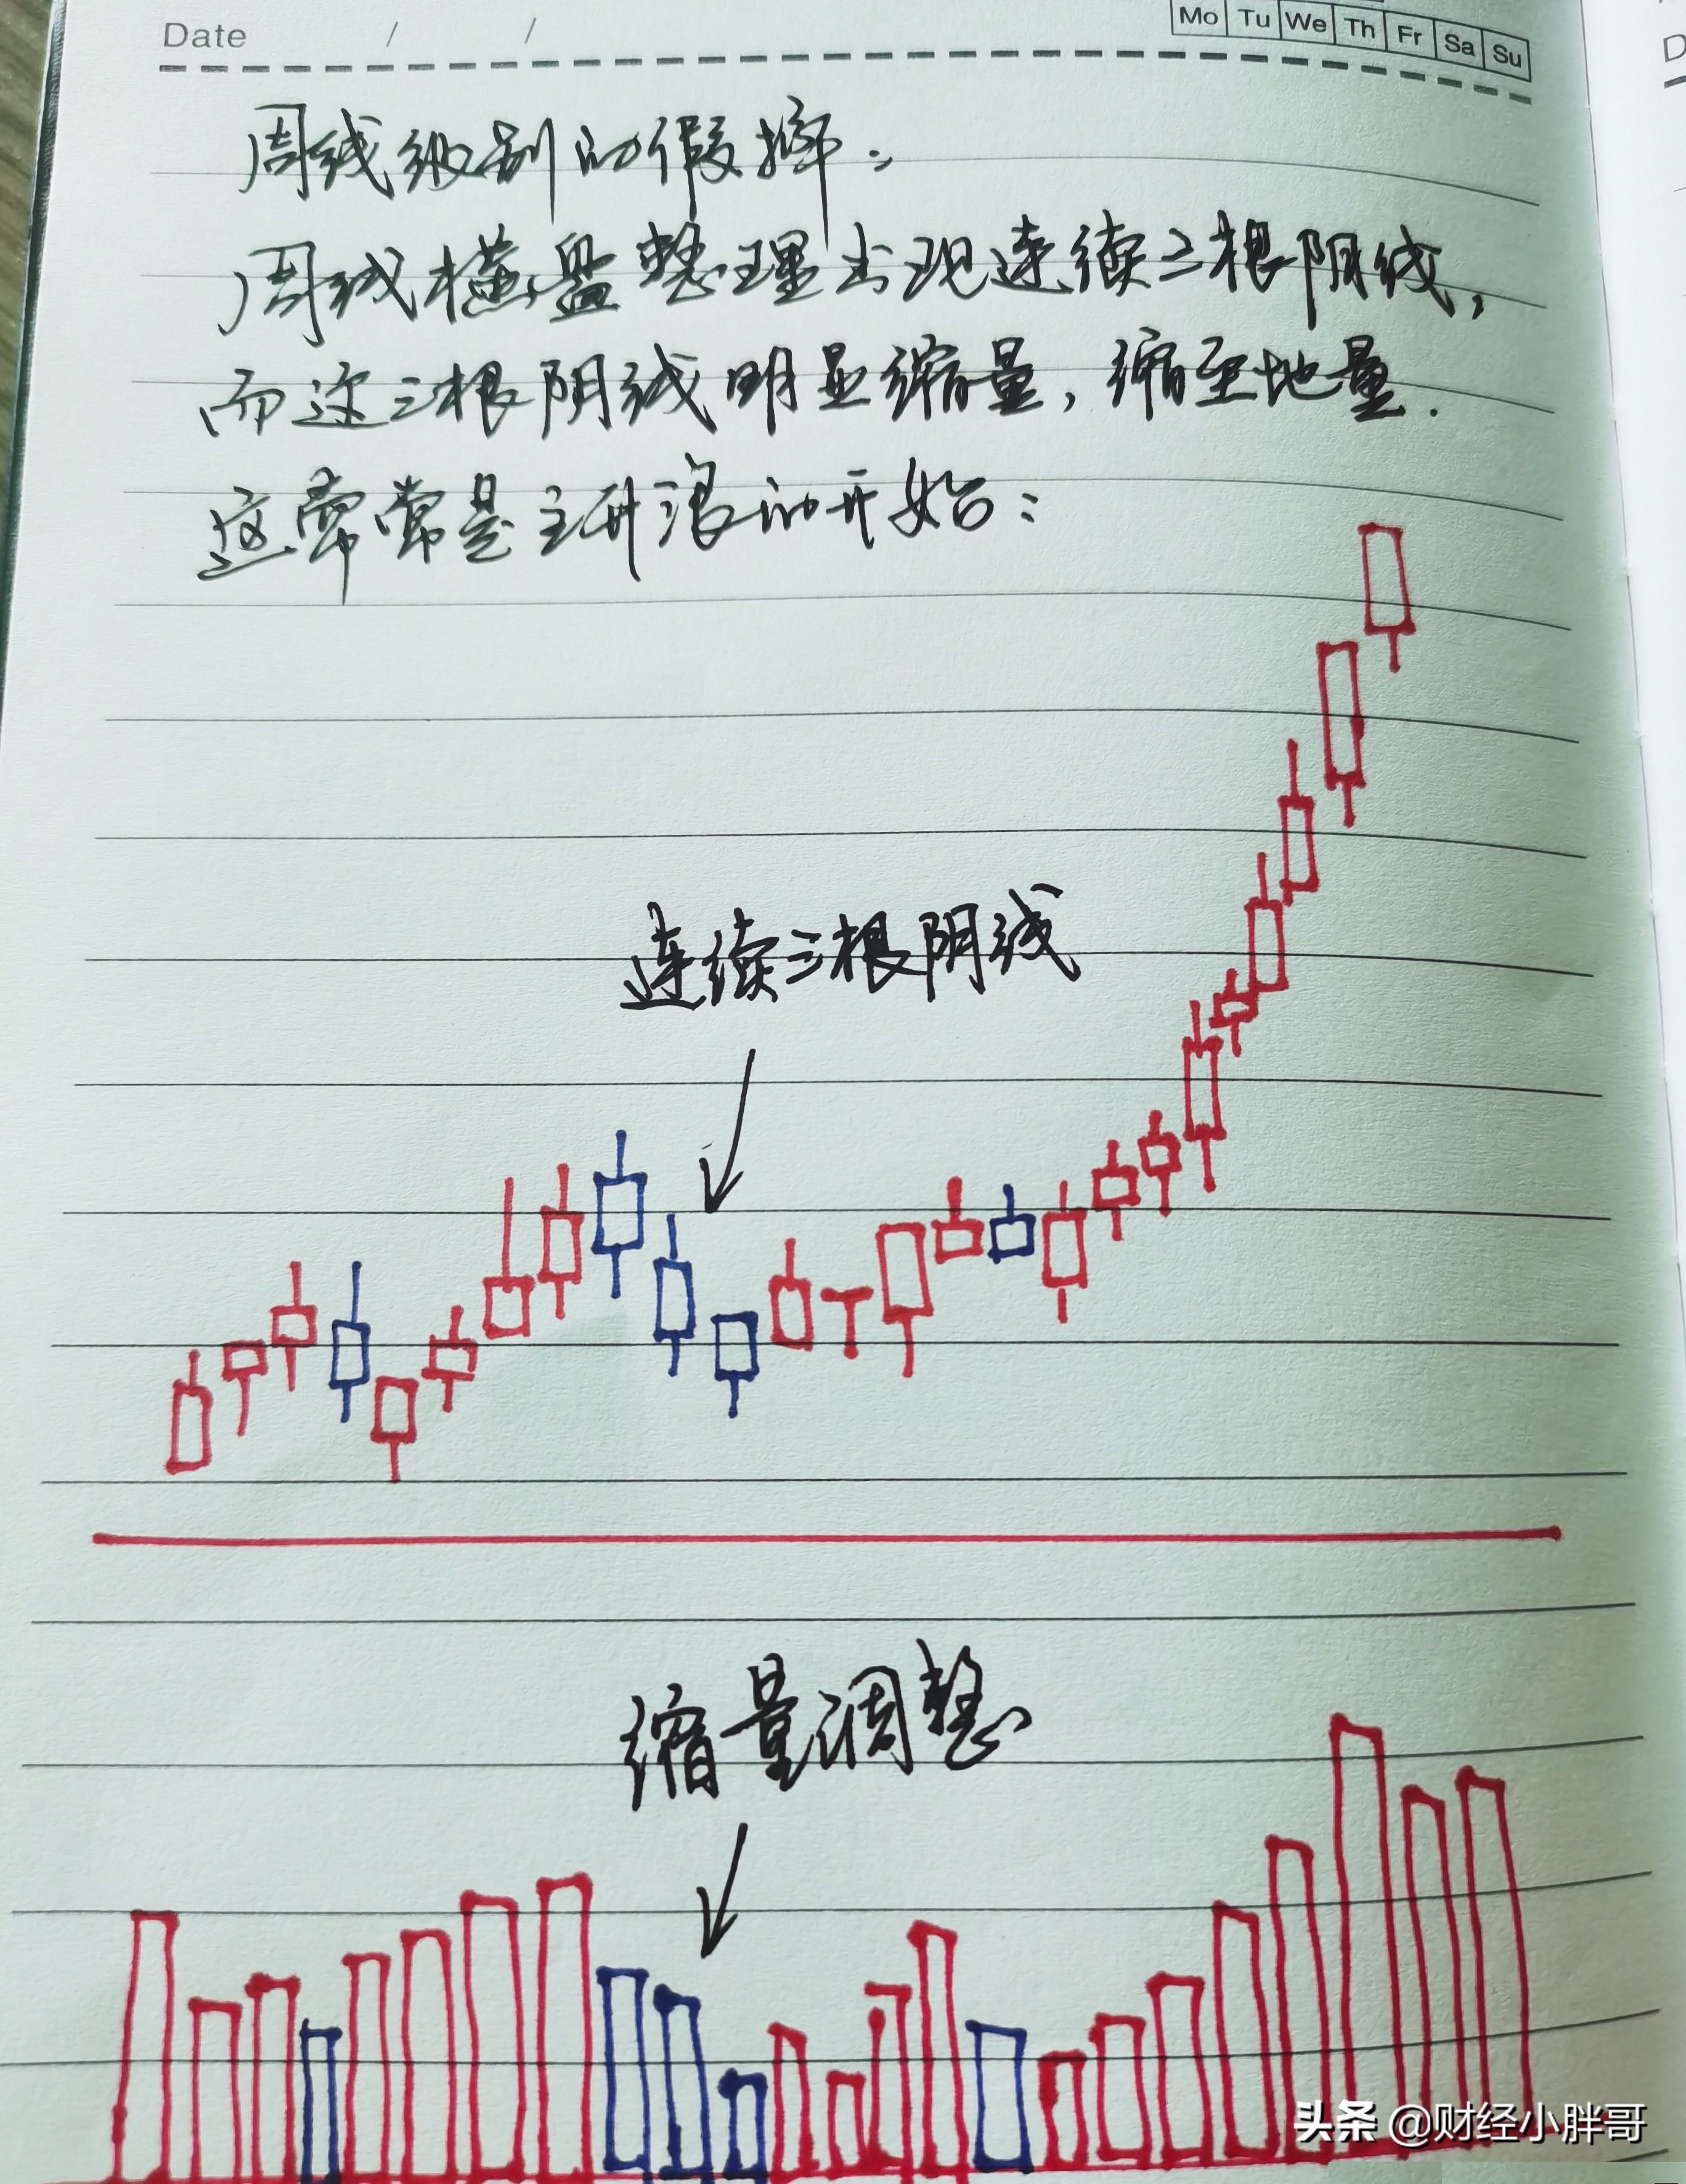 Date / /
Mo Tu We Th Fr Sa Su
周线级别的假摔:
周线横盘整理出现连续三根阴线,
而这三根阴线明显缩量,缩至地量.
这常常是主升浪的开始:
连续三根阴线
缩量调整
头条 @财经小胖哥